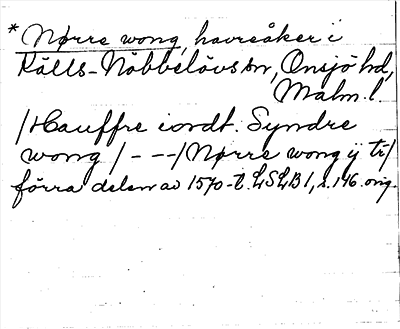 * Nørre wong, havreåker i
Källs-Nöbbelövs sn, Onsjö hd,
Malm. l.
/Hauffre iordt. Syndre
wong / - - -/ Nørre wong ij tr/
förra delen av 1570-t. LSLB 1, s. 146. orig.